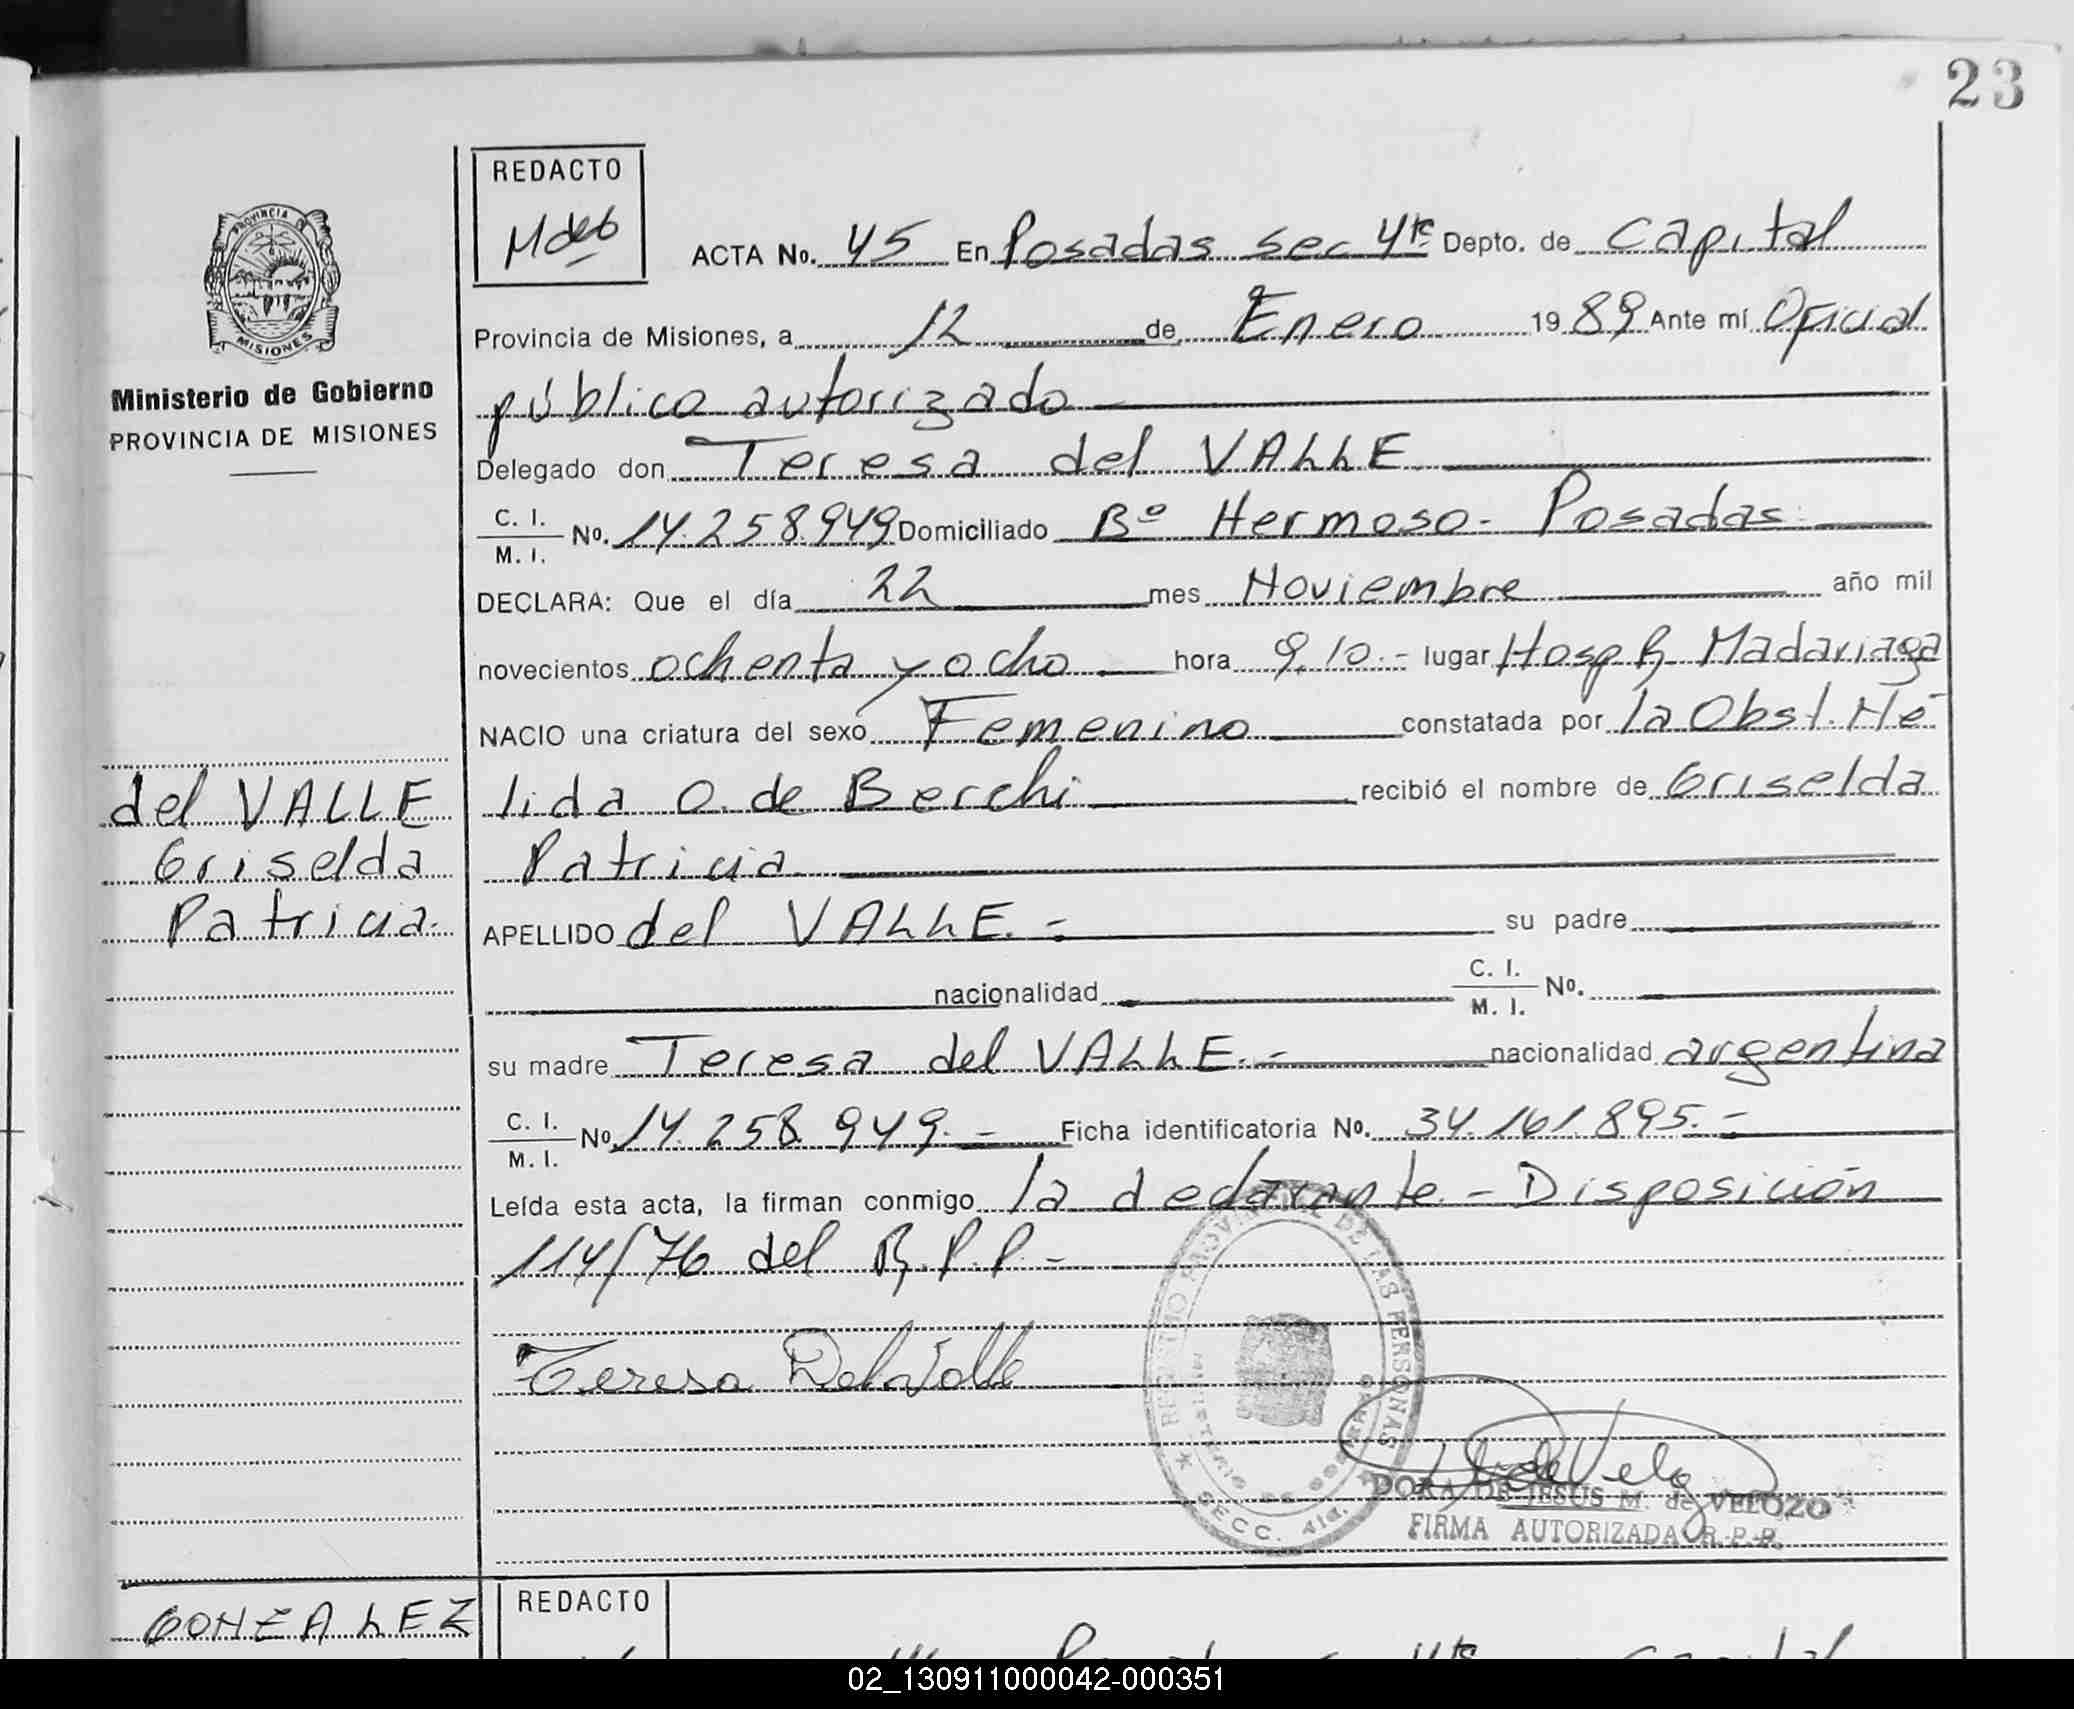 23
REDACTO
PROVINCIA DE
MISIONES
ACTA No. 45 En Posadas sec 4ta Depto. de Capital
Provincia de Misiones, a 12 de Enero 1989 Ante mí Oficial
Ministerio de Gobierno
PROVINCIA DE MISIONES
público autorizado
Delegado don Teresa del VALLE
C. I. / M. I. No. 14.258.949 Domiciliado Bº Hermoso - Posadas
DECLARA: Que el día 22 mes Noviembre año mil
novecientos ochenta y ocho hora 9,10.- lugar Hosp R Madariaga
NACIO una criatura del sexo Femenino constatada por la Obst. Né
lida O. de Berchi recibió el nombre de Griselda
Patricia
del VALLE
Griselda
Patricia.
APELLIDO del VALLE.- su padre
nacionalidad C. I. / M. I. No.
su madre Teresa del VALLE.- nacionalidad argentina
C. I. / M. I. No. 14.258.949.- Ficha identificatoria No. 34.161.895.-
Leída esta acta, la firman conmigo la declarante.- Disposición
114/76 del R.P.P-
Teresa Del Valle
REGISTRO PROVINCIAL DE LAS PERSONAS
MINISTERIO DE GOBIERNO
SECC. 4ta.
DORA DE JESUS M. de VELOZO
FIRMA AUTORIZADA R.P.P.
GONZALEZ
REDACTO
02_130911000042-000351